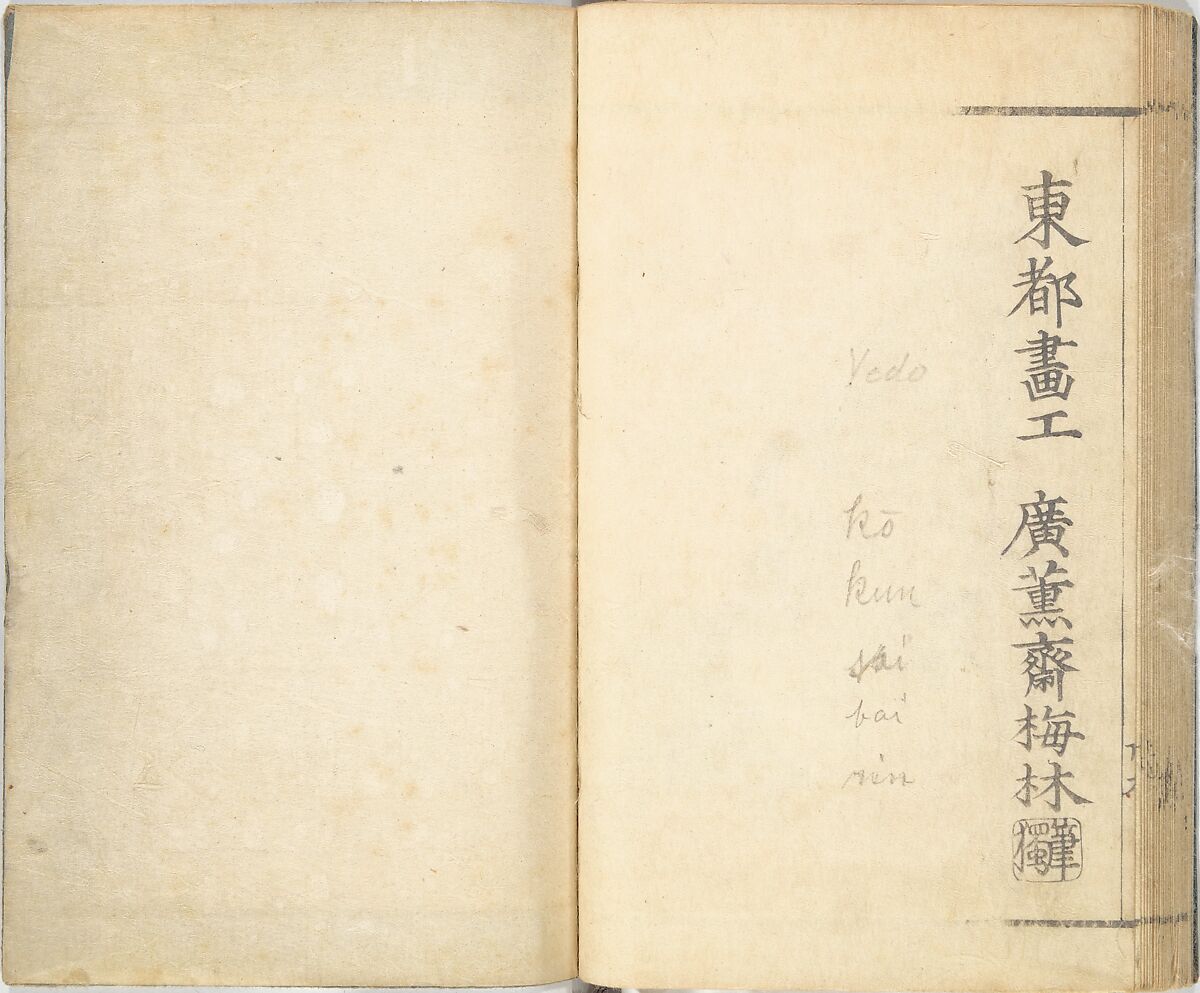 東都畫工 廣薫齋梅林
筆獨
Yedo
kō
kun
sai
bai
rin